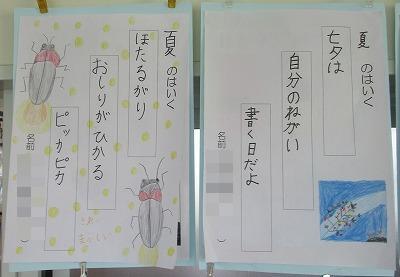 夏のはいく
ほたるがり
おしりがひかる
ピッカピカ
名前
夏のはいく
七夕は
自分のねがい
書く日だよ
名前